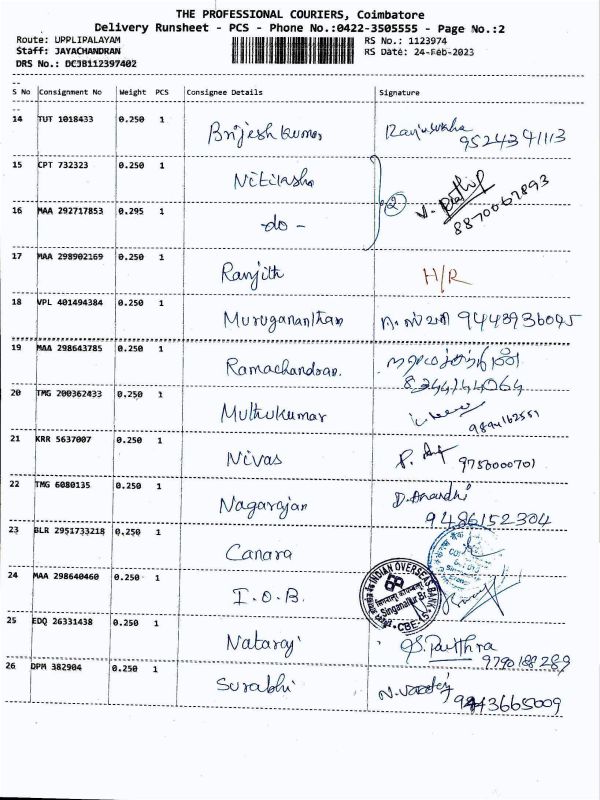 THE PROFESSIONAL COURIERS, Coimbatore
Delivery Runsheet - PCS - Phone No.:0422-3505555 - Page No.:2
Route: UPPLIPALAYAM
RS No.: 1123974
Staff: JAYACHANDRAN
RS Date: 24-Feb-2023
DRS No.: DCJB112397402
S No Consignment No Weight PCS Consignee Details Signature
14 TUT 1018433 0.250 1 Brijesh kumar
9524341113
15 CPT 732323 0.250 1 Nitiksha
2
V. Prathip
8870067893
16 MAA 292717853 0.295 1 -do-
17 MAA 298902169 0.250 1 Ranjith H/R
18 VPL 401494384 0.250 1 Murugananthan 9443936045
19 MAA 298643785 0.250 1 Ramachandran.
8244144064
20 TMG 200362433 0.250 1 Muthukumar
9894162551
21 KRR 5637007 0.250 1 Nivas
9756000701
22 TMG 6080135 0.250 1 Nagarajan D. Anandhi
9486152304
23 BLR 2951733218 0.250 1 Canara
24 MAA 298640460 0.250 1 I.O.B.
INDIAN OVERSEAS BANK
Singanallur Br.
CBE-15
25 EDQ 26331438 0.250 1 Nataraj
9790188289
26 DPM 382904 0.250 1 Surabhi
9443665009